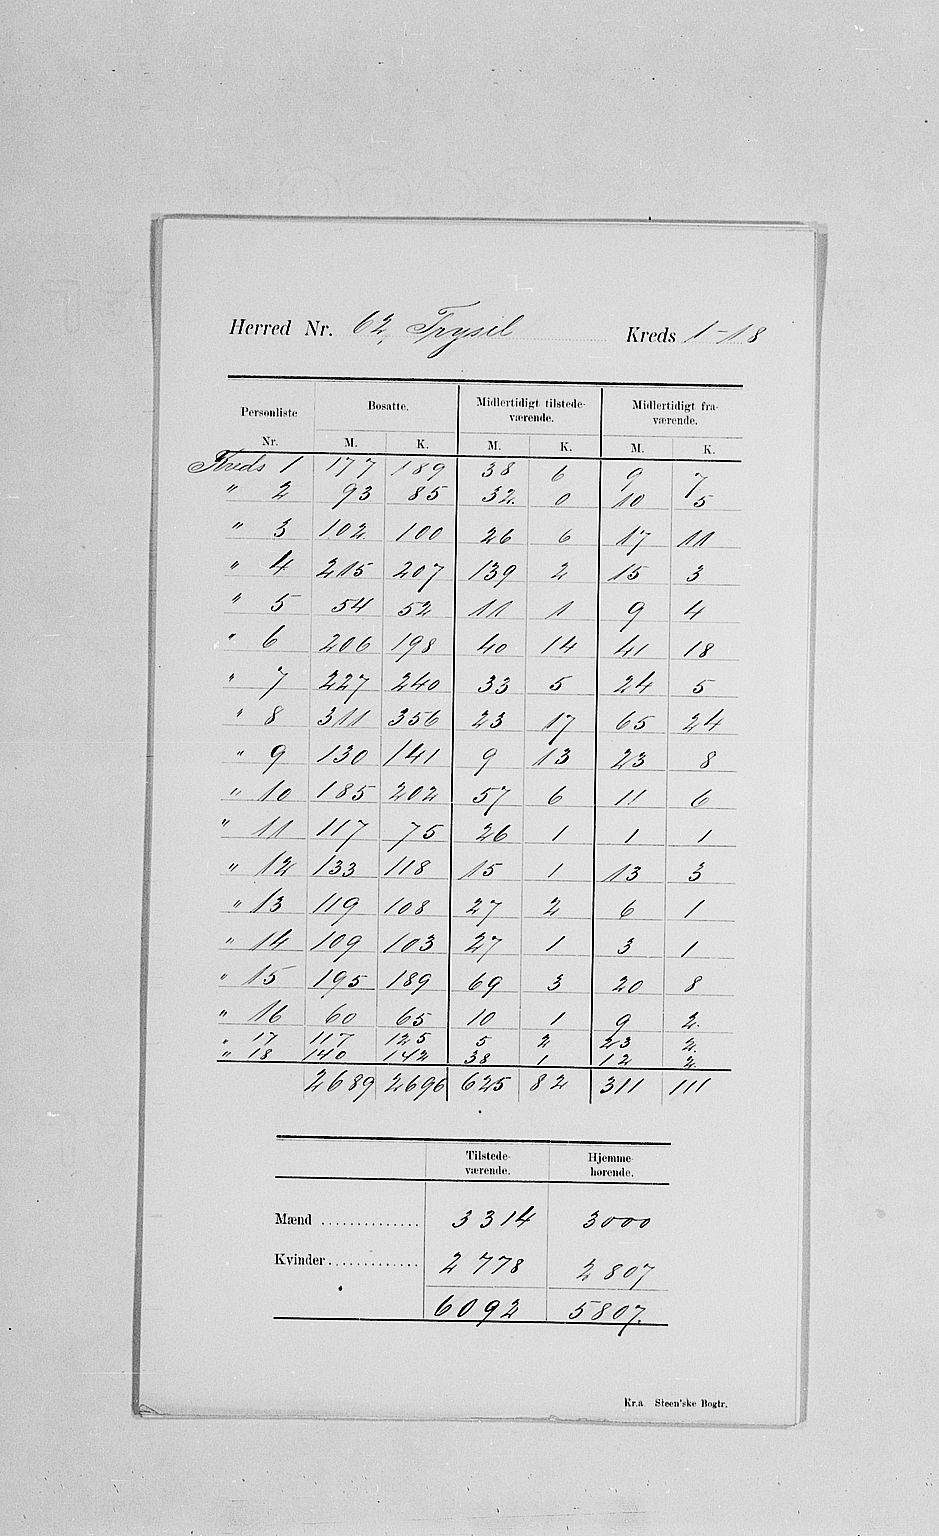 Herred Nr. 62, Trysil Kreds 1-18
Personliste Bosatte. Midlertidigt tilstede- Midlertidigt fra-
værende. værende.
Nr. M. K. M. K. M. K.
Kreds 1 177 189 38 6 9 7
" 2 93 85 32. 0 10 5
" 3 102 100 26 6 17 11
" 4 215 207 139 2 15 3
" 5 54 52 11 1 9 4
" 6 206 198 40 14 41 18
" 7 227 240 33 5 24 5
" 8 311 356 23 17 65 24
" 9 130 141 9 13 23 8
" 10 185 202 57 6 11 6
" 11 117 75 26 1 1 1
" 12 133 118 15 1 13 3
" 13 119 108 27 2 6 1
" 14 109 103 27 1 3 1
" 15 195 189 69 3 20 8
" 16 60 65 10 1 9 2.
" 17 117 125 5 2 23 2.
" 18 140 142 38 1 12 2
2689 2696 625 82 311 111
Tilstede- Hjemme-
værende. hørende.
Mænd .............. 3314 3000
Kvinder ............. 2778 2807
6092 5807.
Kr.a Steen'ske Bogtr.